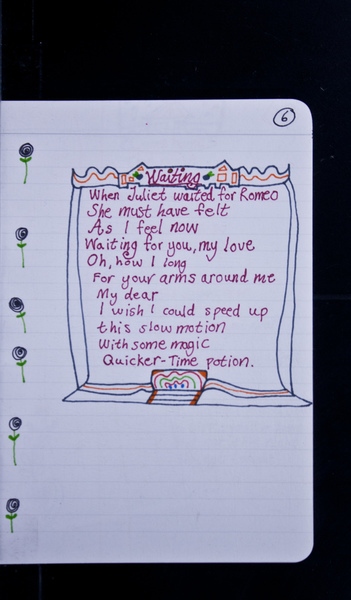 6
Waiting
When Juliet waited for Romeo
She must have felt
As I feel now
Waiting for you, my love
Oh, how I long
For your arms around me
My dear
I wish I could speed up
this slow motion
With some magic
Quicker-Time potion.